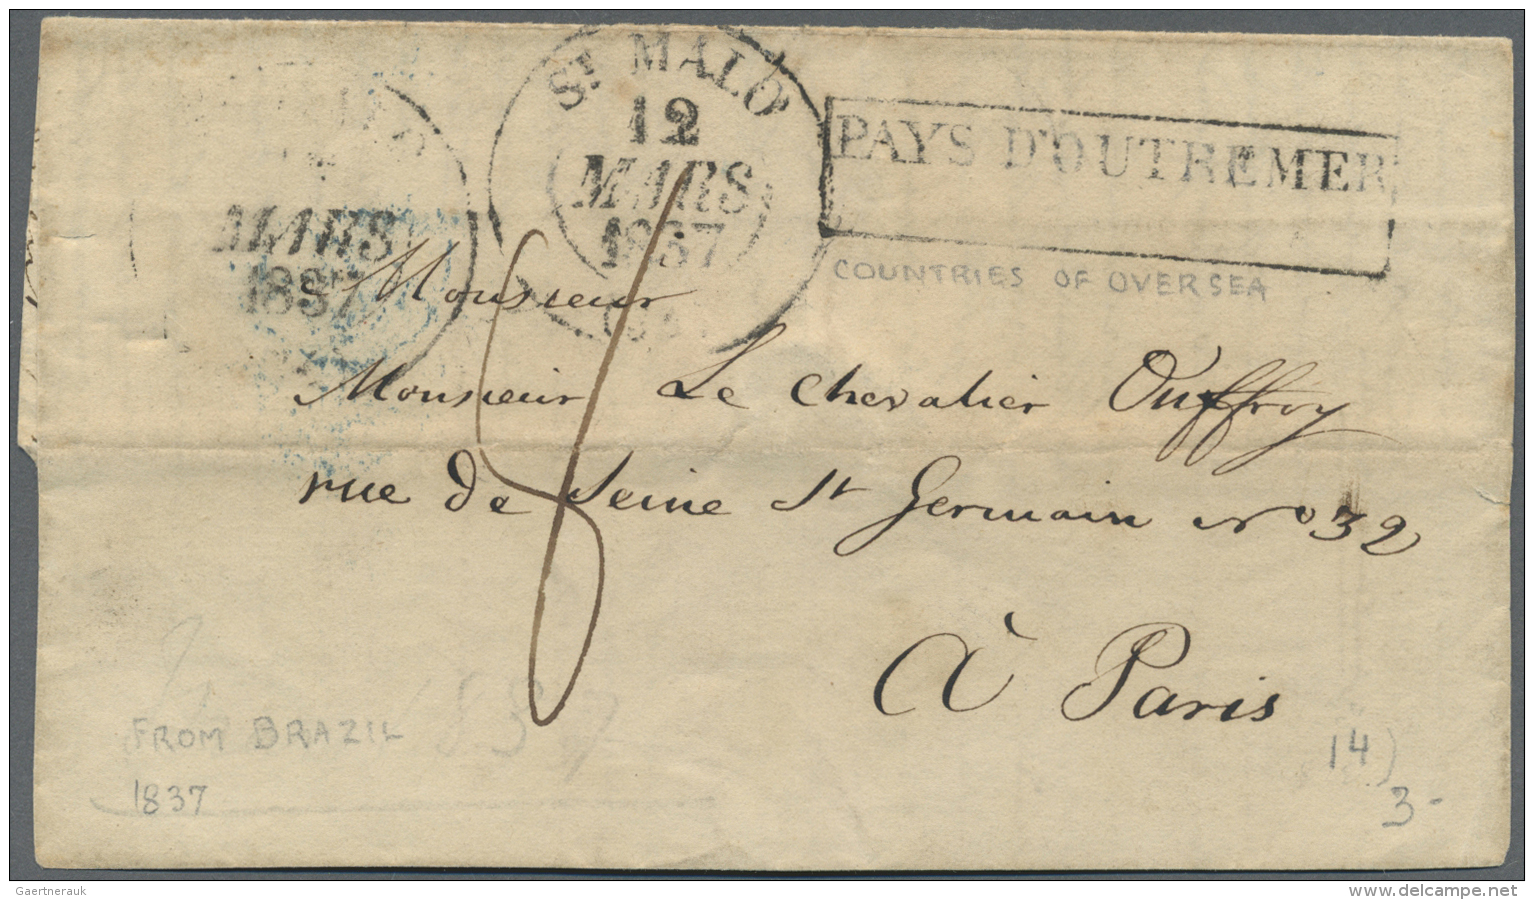 St MALO
12
MARS
1837
MARS
1837
PAYS D'OUTREMER
COUNTRIES OF OVERSEA
Monsieur
Monsieur Le Chevalier Ouffroy
rue de Seine St Germain No 32
à Paris
FROM BRAZIL
1837
1837
14)
3-
Gaertnerauk
www.delcampe.net